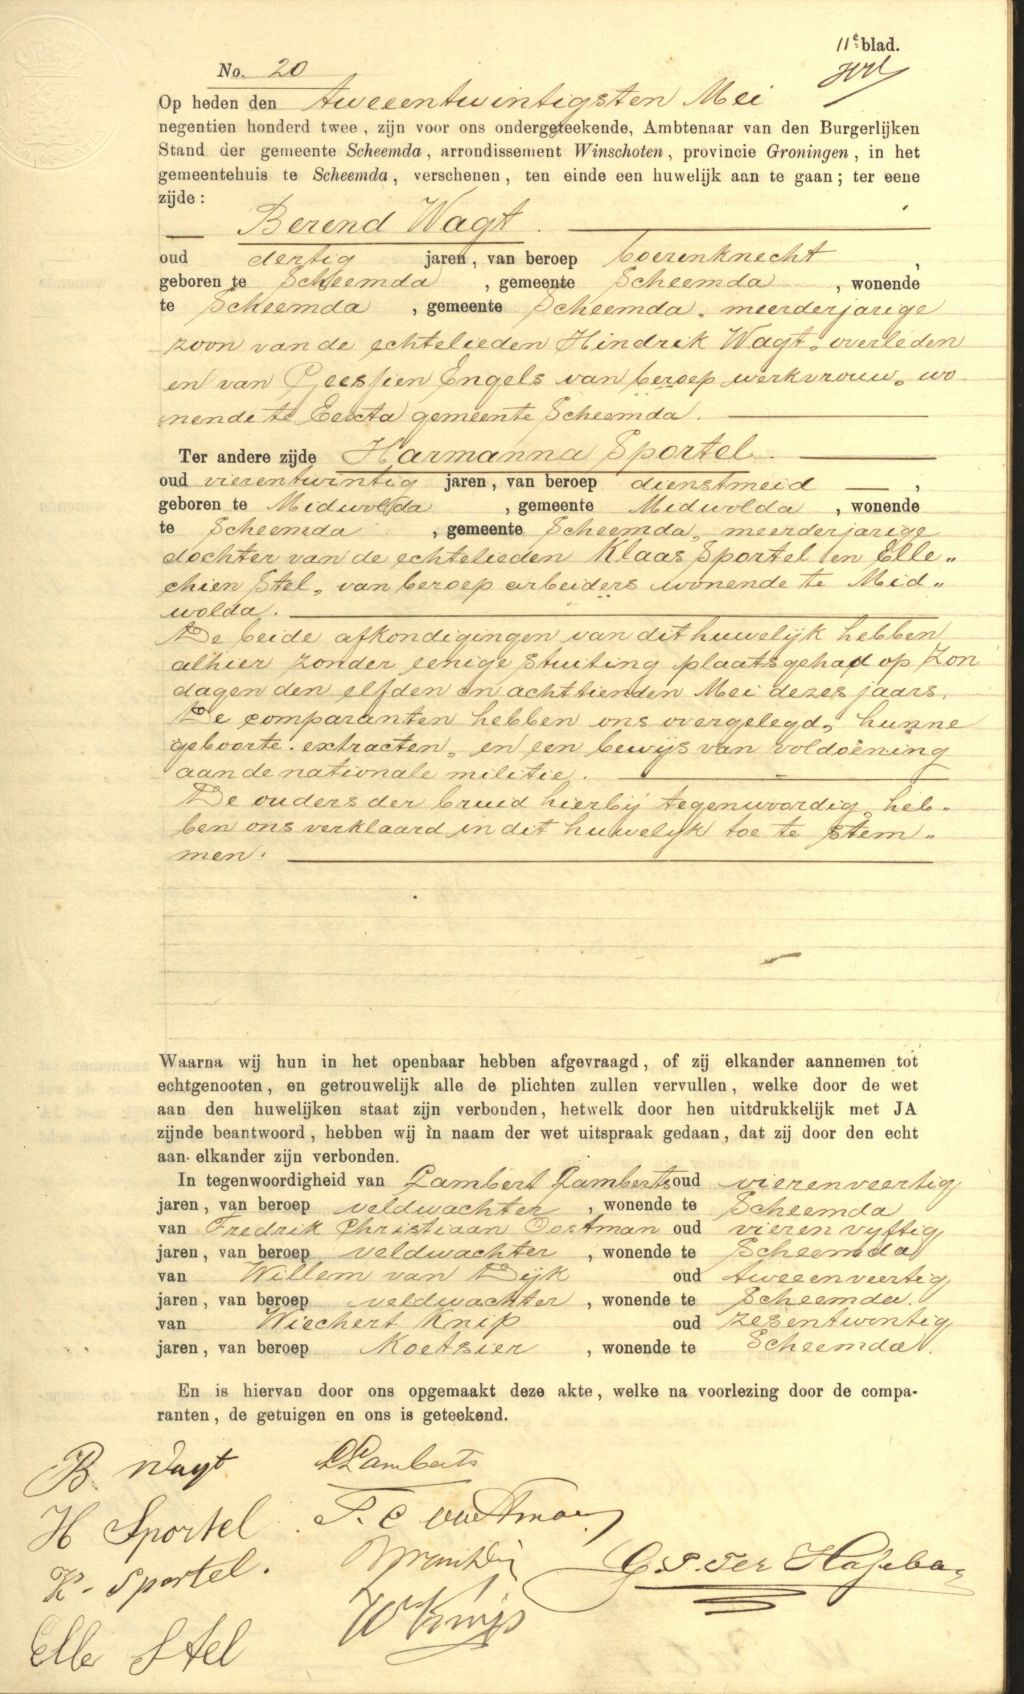 11e blad.
No. 20
Op heden den tweeentwintigsten Mei
negentien honderd twee, zijn voor ons ondergeteekende, Ambtenaar van den Burgerlijken
Stand der gemeente Scheemda, arrondissement Winschoten, provincie Groningen, in het
gemeentehuis te Scheemda, verschenen, ten einde een huwelijk aan te gaan; ter eene
zijde:
Berend Wagt.
oud dertig jaren, van beroep boerenknecht,
geboren te Scheemda, gemeente Scheemda, wonende
te Scheemda, gemeente Scheemda, meerderjarige
zoon van de echtelieden Hindrik Wagt, overleden
en van Geessien Engels van beroep werkvrouw, wo-
nende te Eexta gemeente Scheemda.
Ter andere zijde Harmanna Sportel.
oud vierentwintig jaren, van beroep dienstmeid,
geboren te Midwolda, gemeente Midwolda, wonende
te Scheemda, gemeente Scheemda, meerderjarige
dochter van de echtelieden Klaas Sportel en Elle„
chien Stel, van beroep arbeiders wonende te Mid„
wolda.
De beide afkondigingen van dit huwelijk hebben
alhier zonder eenige stuiting plaatsgehad op Zon
dagen den elfden en achttienden Mei dezes jaars.
De comparanten hebben ons overgelegd, hunne
geboorte-extracten, en een bewijs van voldoening
aan de nationale militie.
De ouders der bruid hierbij tegenwoordig, heb-
ben ons verklaard in dit huwelijk toe te stem„
men.
Waarna wij hun in het openbaar hebben afgevraagd, of zij elkander aannemen tot
echtgenooten, en getrouwelijk alle de plichten zullen vervullen, welke door de wet
aan den huwelijken staat zijn verbonden, hetwelk door hen uitdrukkelijk met JA
zijnde beantwoord, hebben wij in naam der wet uitspraak gedaan, dat zij door den echt
aan elkander zijn verbonden.
In tegenwoordigheid van Lambert Lamberts oud vierenveertig
jaren, van beroep veldwachter, wonende te Scheemda
van Fredrik Christiaan Oostman oud vierenvyftig
jaren, van beroep veldwachter, wonende te Scheemda
van Willem van Dijk oud tweeenveertig
jaren, van beroep veldwachter, wonende te Scheemda.
van Wiechert Knip oud zesentwintig
jaren, van beroep Koetsier, wonende te Scheemda.
En is hiervan door ons opgemaakt deze akte, welke na voorlezing door de compa-
ranten, de getuigen en ons is geteekend.
B. Wagt
L Lamberts
H Sportel
F. C. Oostman
K. Sportel.
W van Dijk
G. P. Ter Haseborg
Elle Stel
W Knip